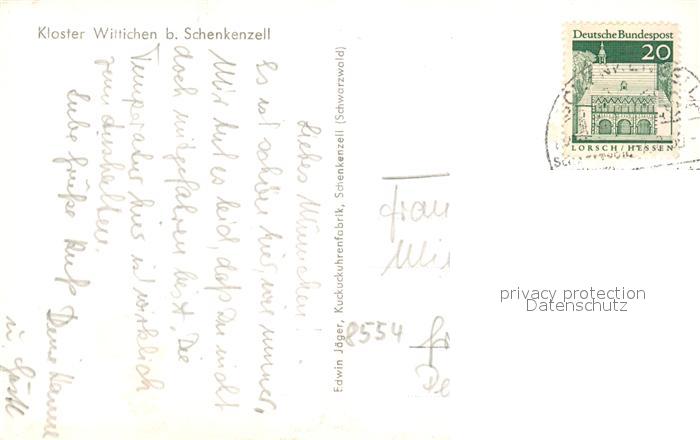 Kloster Wittichen b. Schenkenzell
Liebes Männchen!
Es ist schön hier, wie immer,
Mir tut es leid, daß Du nicht
doch mitgefahren bist. Die
Temperatur hier ist wirklich
zum Aushalten.
Liebe Grüße Kuß Deine
u.
Edwin Jäger, Kuckuckuhrenfabrik, Schenkenzell (Schwarzwald)
Deutsche Bundespost
20
LORSCH/HESSEN
Frau
8554
privacy protection
Datenschutz